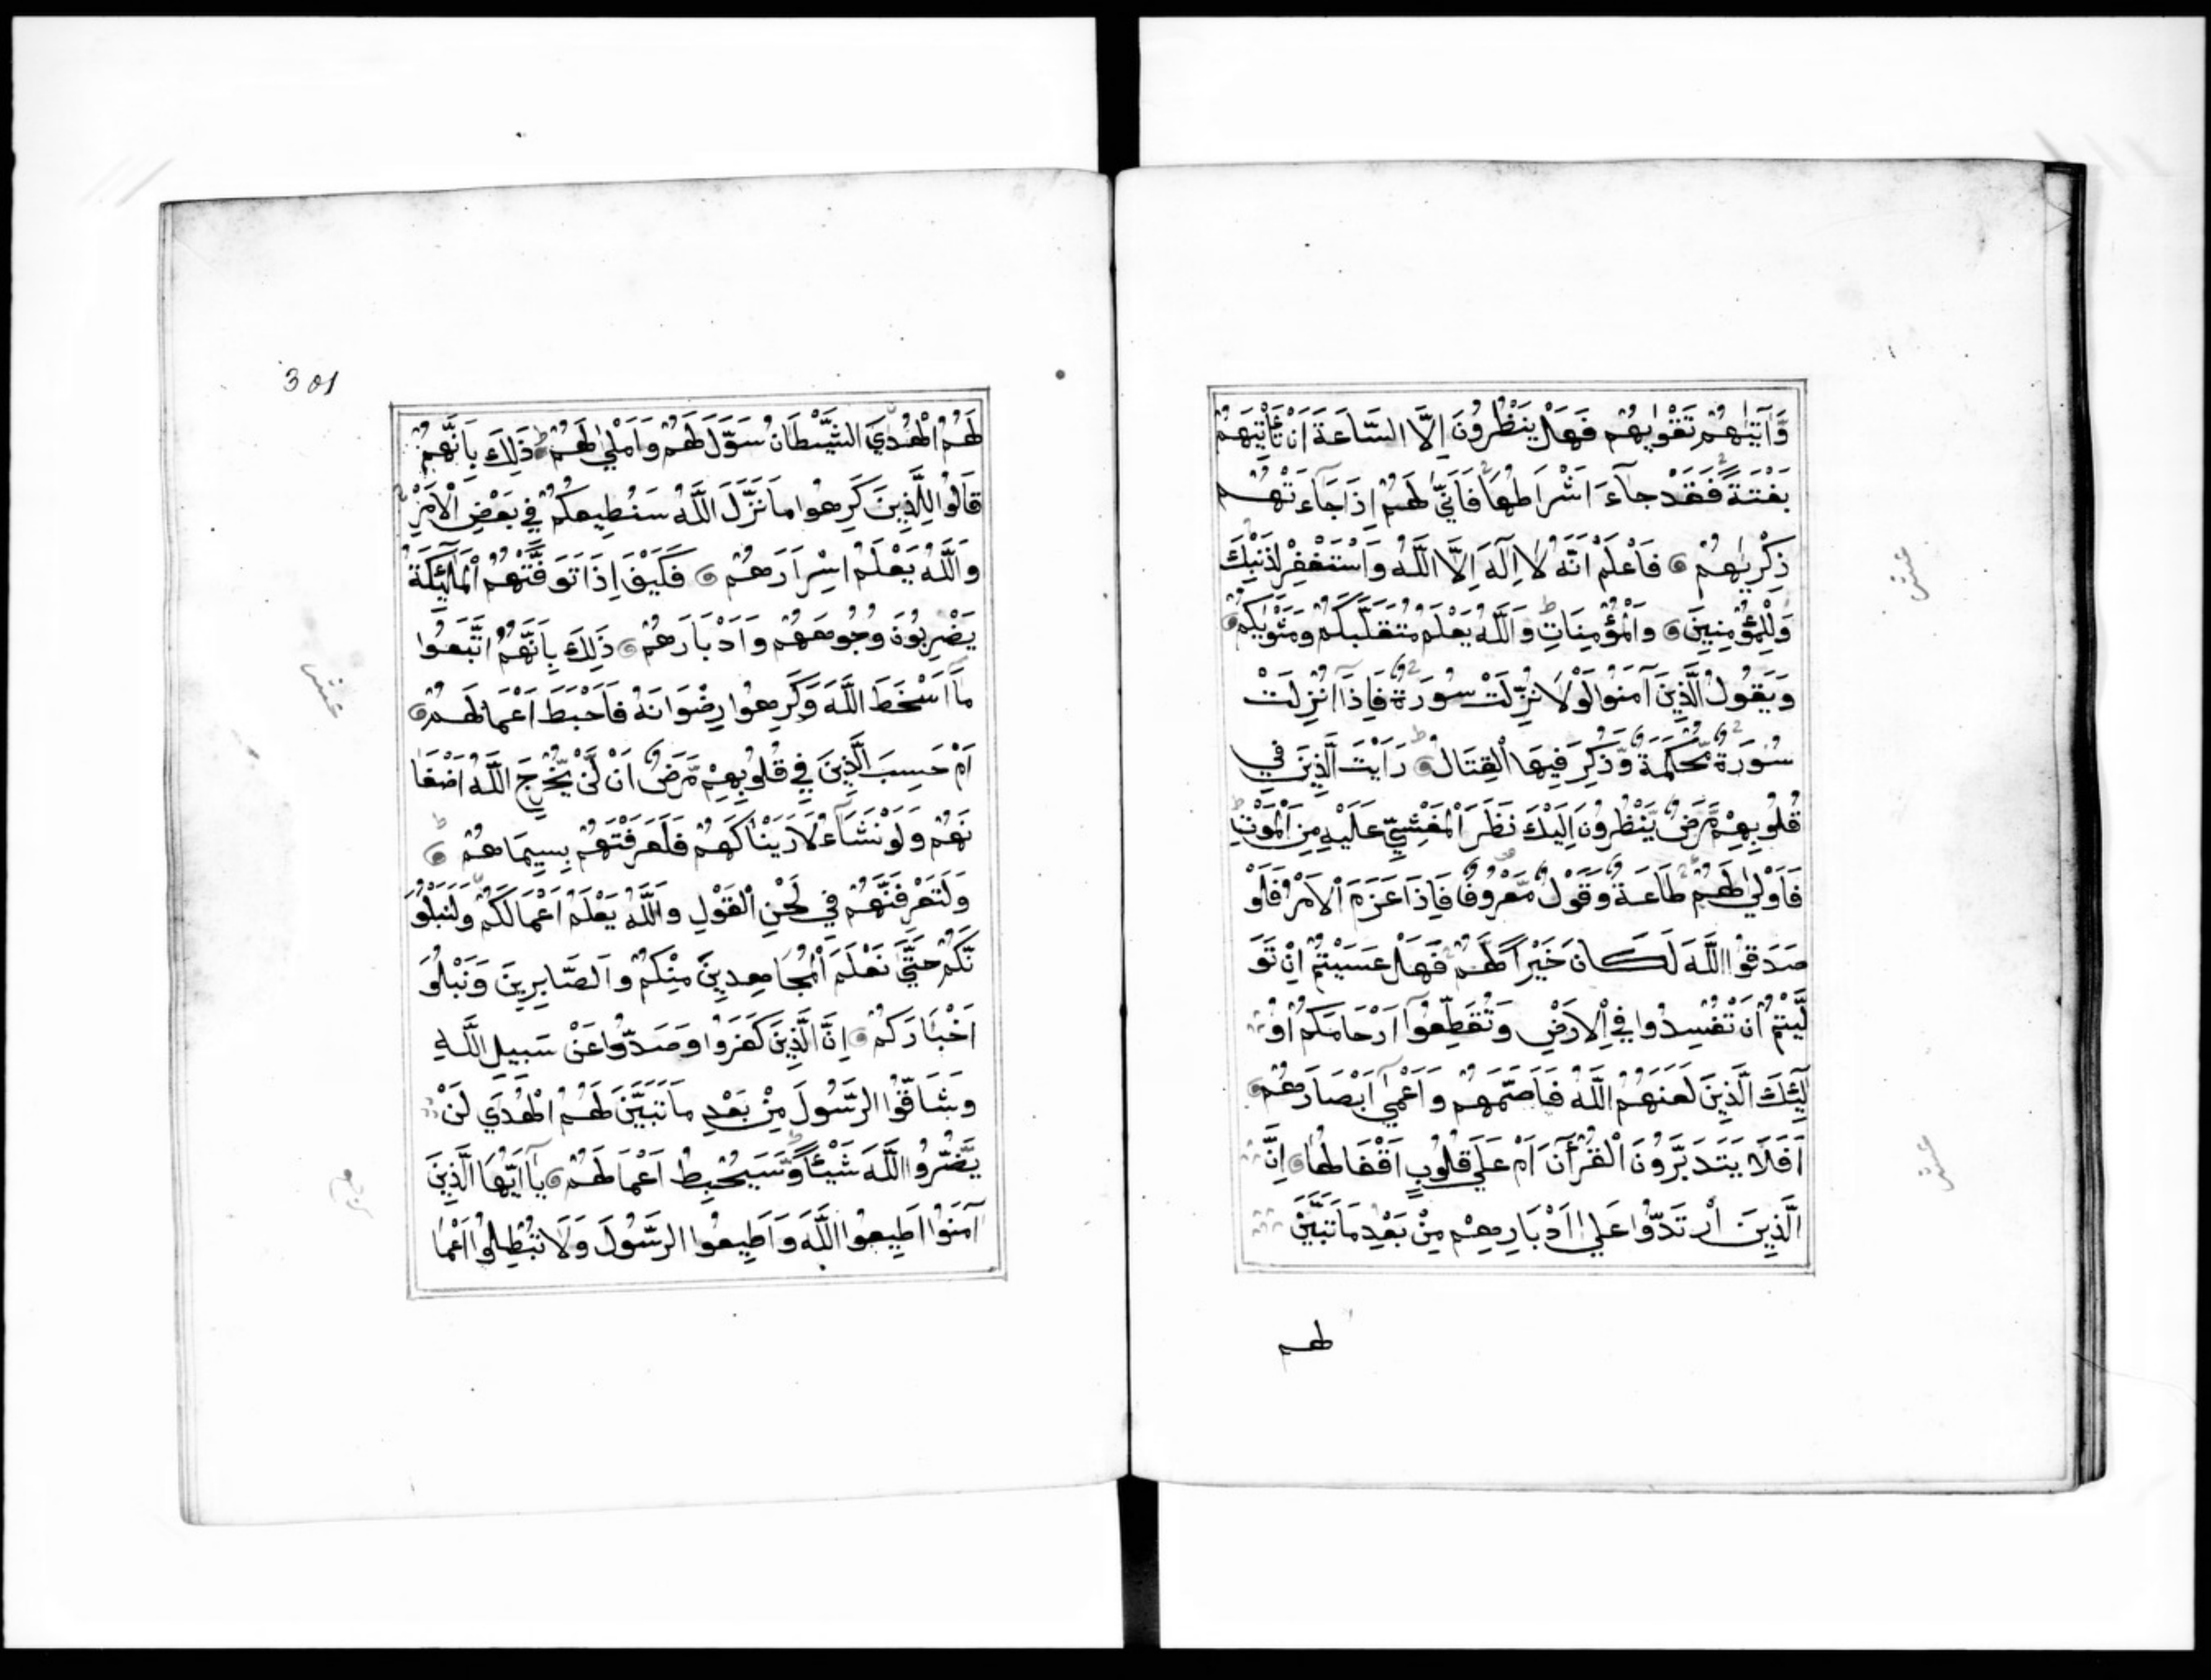 وَآتٰيهُمْ تَقْوٰيهُمْ فَهَلْ يَنْظُرُونَ اِلَّا السَّاعَةَ اَنْ تَأْتِيَهُمْ
بَغْتَةً فَقَدْ جَآءَ اَشْرَاطُهَا فَاَنّٰي لَهُمْ اِذَا جَآءَتْهُمْ
ذِكْرٰيهُمْ فَاعْلَمْ اَنَّهُ لَا اِلٰهَ اِلَّا اللَّهُ وَاسْتَغْفِرْ لِذَنْبِكَ
وَلِلْمُؤْمِنِينَ وَالْمُؤْمِنَاتِ وَاللَّهُ يَعْلَمُ مُتَقَلَّبَكُمْ وَمَثْوٰيكُمْ
وَيَقُولُ الَّذِينَ آمَنُوا لَوْلَا نُزِّلَتْ سُورَةٌ فَاِذَا اُنْزِلَتْ
سُورَةٌ مُّحْكَمَةٌ وَّذُكِرَ فِيهَا الْقِتَالُ رَاَيْتَ الَّذِينَ فِي
قُلُوبِهِمْ مَّرَضٌ يَّنْظُرُونَ اِلَيْكَ نَظَرَ الْمَغْشِيِّ عَلَيْهِ مِنَ الْمَوْتِ
فَاَوْلٰي لَهُمْ طَاعَةٌ وَّقَوْلٌ مَّعْرُوفٌ فَاِذَا عَزَمَ الْاَمْرُ فَلَوْ
صَدَقُوا اللَّهَ لَكَانَ خَيْرًا لَّهُمْ فَهَلْ عَسَيْتُمْ اِنْ تَوَ
لَّيْتُمْ اَنْ تُفْسِدُوا فِي الْاَرْضِ وَتُقَطِّعُوا اَرْحَامَكُمْ اُو
لٰٓئِكَ الَّذِينَ لَعَنَهُمُ اللَّهُ فَاَصَمَّهُمْ وَاَعْمٰي اَبْصَارَهُمْ
اَفَلَا يَتَدَبَّرُونَ الْقُرْآنَ اَمْ عَلٰي قُلُوبٍ اَقْفَالُهَا اِنَّ
الَّذِينَ ارْتَدُّوا عَلٰي اَدْبَارِهِمْ مِنْ بَعْدِ مَا تَبَيَّنَ
لهم
عشر
عشر
301
لَهُمُ الْهُدَي الشَّيْطَانُ سَوَّلَ لَهُمْ وَاَمْلٰي لَهُمْ ذٰلِكَ بِاَنَّهُمْ
قَالُوا لِلَّذِينَ كَرِهُوا مَا نَزَّلَ اللَّهُ سَنُطِيعُكُمْ فِي بَعْضِ الْاَمْرِ
وَاللَّهُ يَعْلَمُ اِسْرَارَهُمْ فَكَيْفَ اِذَا تَوَفَّتْهُمُ الْمَلٰٓئِكَةُ
يَضْرِبُونَ وُجُوهَهُمْ وَاَدْبَارَهُمْ ذٰلِكَ بِاَنَّهُمُ اتَّبَعُوا
مَا اَسْخَطَ اللَّهَ وَكَرِهُوا رِضْوَانَهُ فَاَحْبَطَ اَعْمَالَهُمْ
اَمْ حَسِبَ الَّذِينَ فِي قُلُوبِهِمْ مَّرَضٌ اَنْ لَّنْ يُّخْرِجَ اللَّهُ اَضْغَا
نَهُمْ وَلَوْ نَشَآءُ لَاَرَيْنَاكَهُمْ فَلَعَرَفْتَهُمْ بِسِيمَاهُمْ
وَلَتَعْرِفَنَّهُمْ فِي لَحْنِ الْقَوْلِ وَاللَّهُ يَعْلَمُ اَعْمَالَكُمْ وَلَنَبْلُوَ
نَّكُمْ حَتَّي نَعْلَمَ الْمُجَاهِدِينَ مِنْكُمْ وَالصَّابِرِينَ وَنَبْلُوَ
اَخْبَارَكُمْ اِنَّ الَّذِينَ كَفَرُوا وَصَدُّوا عَنْ سَبِيلِ اللَّهِ
وَشَاقُّوا الرَّسُولَ مِنْ بَعْدِ مَا تَبَيَّنَ لَهُمُ الْهُدَي لَنْ
يَّضُرُّوا اللَّهَ شَيْئًا وَّسَيُحْبِطُ اَعْمَالَهُمْ يَا اَيُّهَا الَّذِينَ
آمَنُوا اَطِيعُوا اللَّهَ وَاَطِيعُوا الرَّسُولَ وَلَا تُبْطِلُوا اَعْمَا
عشر